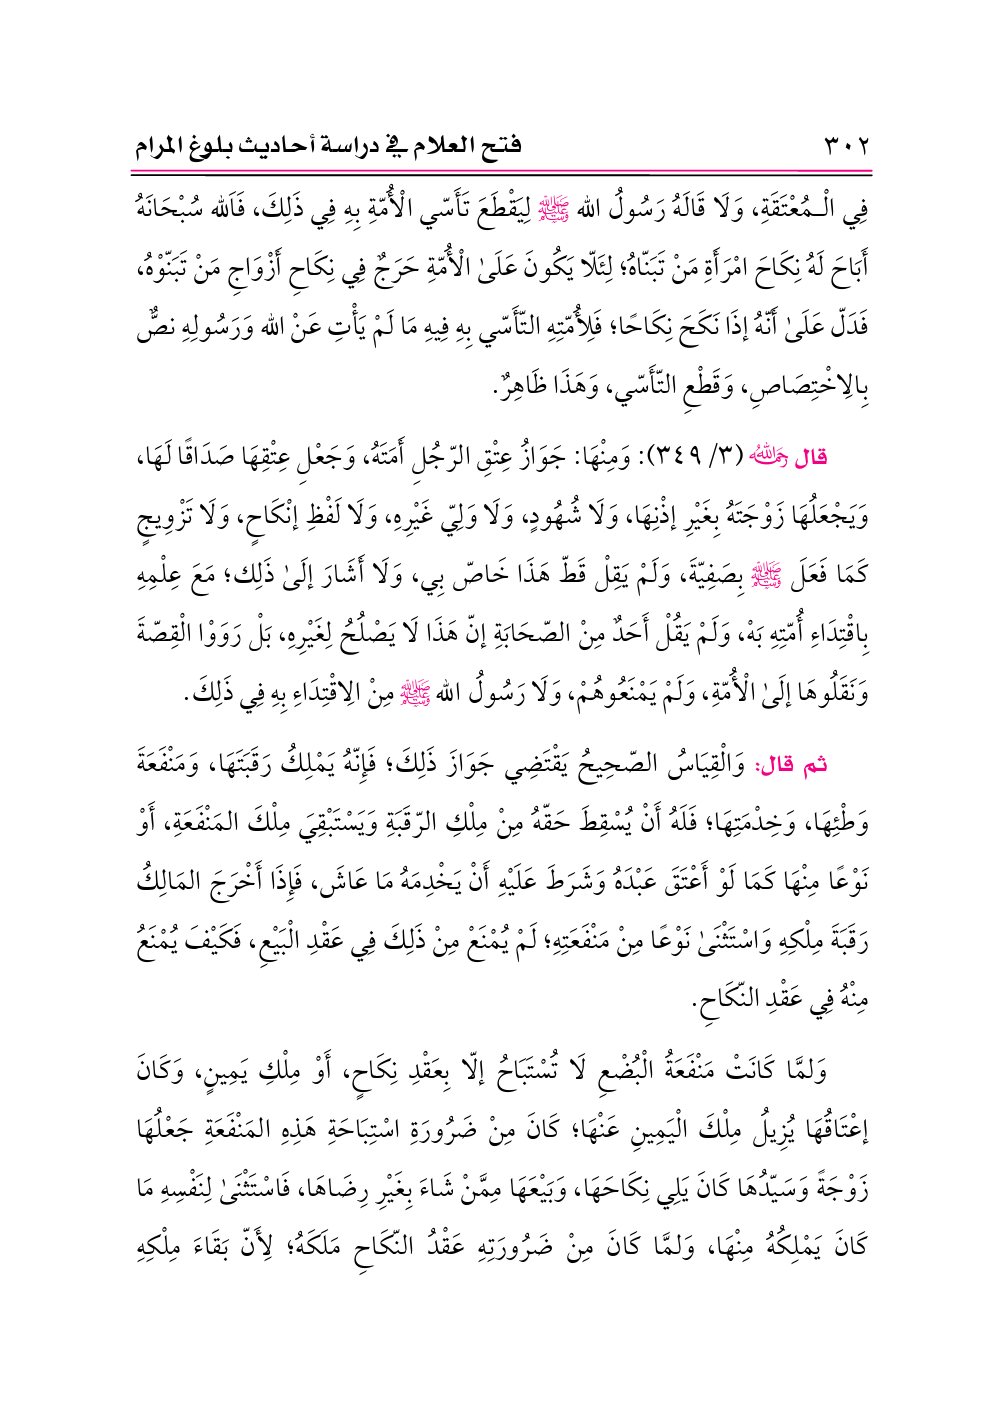 ٣٠٢ فتح العلام في دراسة أحاديث بلوغ المرام
فِي الْـمُعْتَقَةِ، وَلَا قَالَهُ رَسُولُ الله ﷺ لِيَقْطَعَ تَأَسّي الْأُمّةِ بِهِ فِي ذَلِكَ، فَاَلله سُبْحَانَهُ
أَبَاحَ لَهُ نِكَاحَ امْرَأَةِ مَنْ تَبَنّاهُ؛ لِئَلّا يَكُونَ عَلَىٰ الْأُمّةِ حَرَجٌ فِي نِكَاحِ أَزْوَاجِ مَنْ تَبَنّوْهُ،
فَدَلّ عَلَىٰ أَنّهُ إذَا نَكَحَ نِكَاحًا؛ فَلِأُمّتِهِ التّأَسّي بِهِ فِيهِ مَا لَمْ يَأْتِ عَنْ الله وَرَسُولِهِ نصٌّ
بِالِاخْتِصَاصِ، وَقَطْعِ التّأَسّي، وَهَذَا ظَاهِرٌ.
قال رَحِمَهُ اللهُ (٣/ ٣٤٩): وَمِنْهَا: جَوَازُ عِتْقِ الرّجُلِ أَمَتَهُ، وَجَعْلِ عِتْقِهَا صَدَاقًا لَهَا،
وَيَجْعَلُهَا زَوْجَتَهُ بِغَيْرِ إذْنِهَا، وَلَا شُهُودٍ، وَلَا وَلِيّ غَيْرِهِ، وَلَا لَفْظِ إنْكَاحٍ، وَلَا تَزْوِيجٍ
كَمَا فَعَلَ ﷺ بِصَفِيّةَ، وَلَمْ يَقِلْ قَطّ هَذَا خَاصّ بِي، وَلَا أَشَارَ إلَىٰ ذَلِك؛ مَعَ عِلْمِهِ
بِاقْتِدَاءِ أُمّتِهِ بَهْ، وَلَمْ يَقُلْ أَحَدٌ مِنْ الصّحَابَةِ إنّ هَذَا لَا يَصْلُحُ لِغَيْرِهِ، بَلْ رَوَوْا الْقِصّةَ
وَنَقَلُوهَا إلَىٰ الْأُمّةِ، وَلَمْ يَمْنَعُوهُمْ، وَلَا رَسُولُ الله ﷺ مِنْ الِاقْتِدَاءِ بِهِ فِي ذَلِكَ.
ثم قال: وَالْقِيَاسُ الصّحِيحُ يَقْتَضِي جَوَازَ ذَلِكَ؛ فَإِنّهُ يَمْلِكُ رَقَبَتَهَا، وَمَنْفَعَةَ
وَطْئِهَا، وَخِدْمَتِهَا؛ فَلَهُ أَنْ يُسْقِطَ حَقّهُ مِنْ مِلْكِ الرّقَبَةِ وَيَسْتَبْقِيَ مِلْكَ المَنْفَعَةِ، أَوْ
نَوْعًا مِنْهَا كَمَا لَوْ أَعْتَقَ عَبْدَهُ وَشَرَطَ عَلَيْهِ أَنْ يَخْدِمَهُ مَا عَاشَ، فَإِذَا أَخْرَجَ المَالِكُ
رَقَبَةَ مِلْكِهِ وَاسْتَثْنَىٰ نَوْعًا مِنْ مَنْفَعَتِهِ؛ لَمْ يُمْنَعْ مِنْ ذَلِكَ فِي عَقْدِ الْبَيْعِ، فَكَيْفَ يُمْنَعُ
مِنْهُ فِي عَقْدِ النّكَاحِ.
وَلمَّا كَانَتْ مَنْفَعَةُ الْبُضْعِ لَا تُسْتَبَاحُ إلّا بِعَقْدِ نِكَاحٍ، أَوْ مِلْكِ يَمِينٍ، وَكَانَ
إعْتَاقُهَا يُزِيلُ مِلْكَ الْيَمِينِ عَنْهَا؛ كَانَ مِنْ ضَرُورَةِ اسْتِبَاحَةِ هَذِهِ المَنْفَعَةِ جَعْلُهَا
زَوْجَةً وَسَيّدُهَا كَانَ يَلِي نِكَاحَهَا، وَبَيْعَهَا مِمَّنْ شَاءَ بِغَيْرِ رِضَاهَا، فَاسْتَثْنَىٰ لِنَفْسِهِ مَا
كَانَ يَمْلِكُهُ مِنْهَا، وَلمَّا كَانَ مِنْ ضَرُورَتِهِ عَقْدُ النّكَاحِ مَلَكَهُ؛ لِأَنّ بَقَاءَ مِلْكِهِ